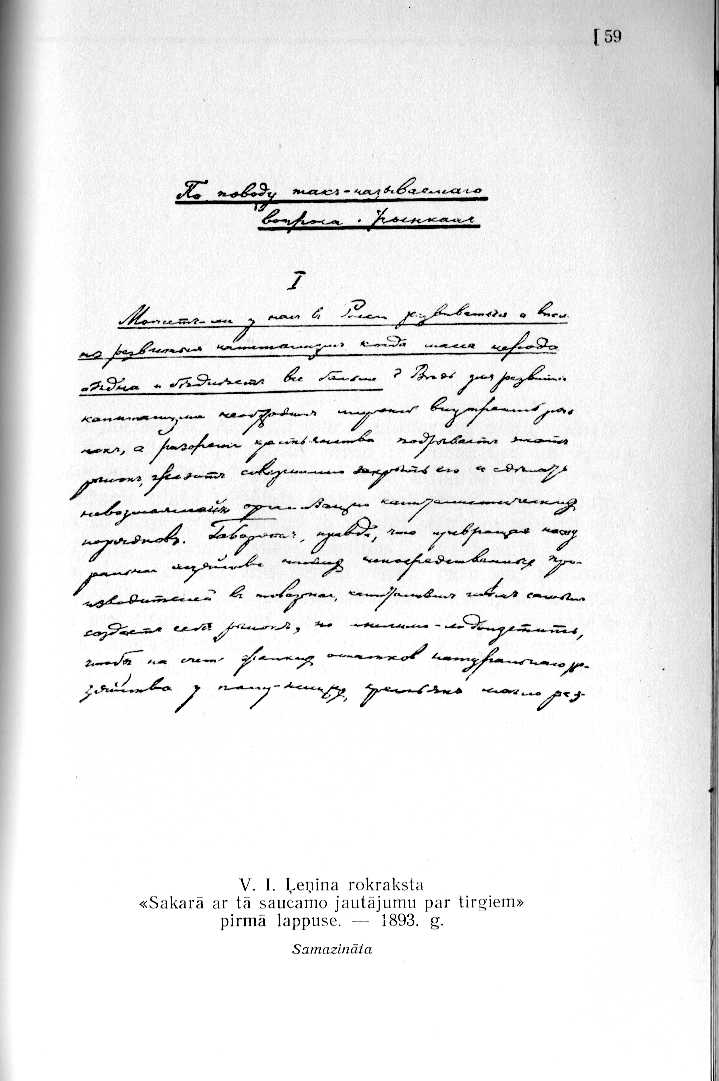 [59
По поводу такъ-называемаго
вопроса о рынкахъ
I
Можетъ-ли у насъ въ Россіи развиваться и впол-
нѣ развиться капитализмъ, когда масса народа
бѣдна и бѣднѣетъ все больше? Вѣдь для развитія
капитализма необходимъ широкій внутренній ры-
нокъ, а разореніе крестьянства подрываетъ этотъ
рынокъ, грозитъ совершенно закрыть его и сдѣлать
невозможной организацію капиталистическихъ
порядковъ. Говорятъ, правда, что превращая нату-
ральное хозяйство нашихъ непосредственныхъ про-
изводителей въ товарное, капитализмъ тѣмъ самымъ
создаетъ себѣ рынокъ, но мыслимо-ли допустить,
чтобы на счетъ жалкихъ остатковъ натуральнаго хо-
зяйства у полу-нищихъ крестьянъ могло раз-
V. I. Ļeņina rokraksta
«Sakarā ar tā saucamo jautājumu par tirgiem»
pirmā lappuse. — 1893. g.
Samazināta